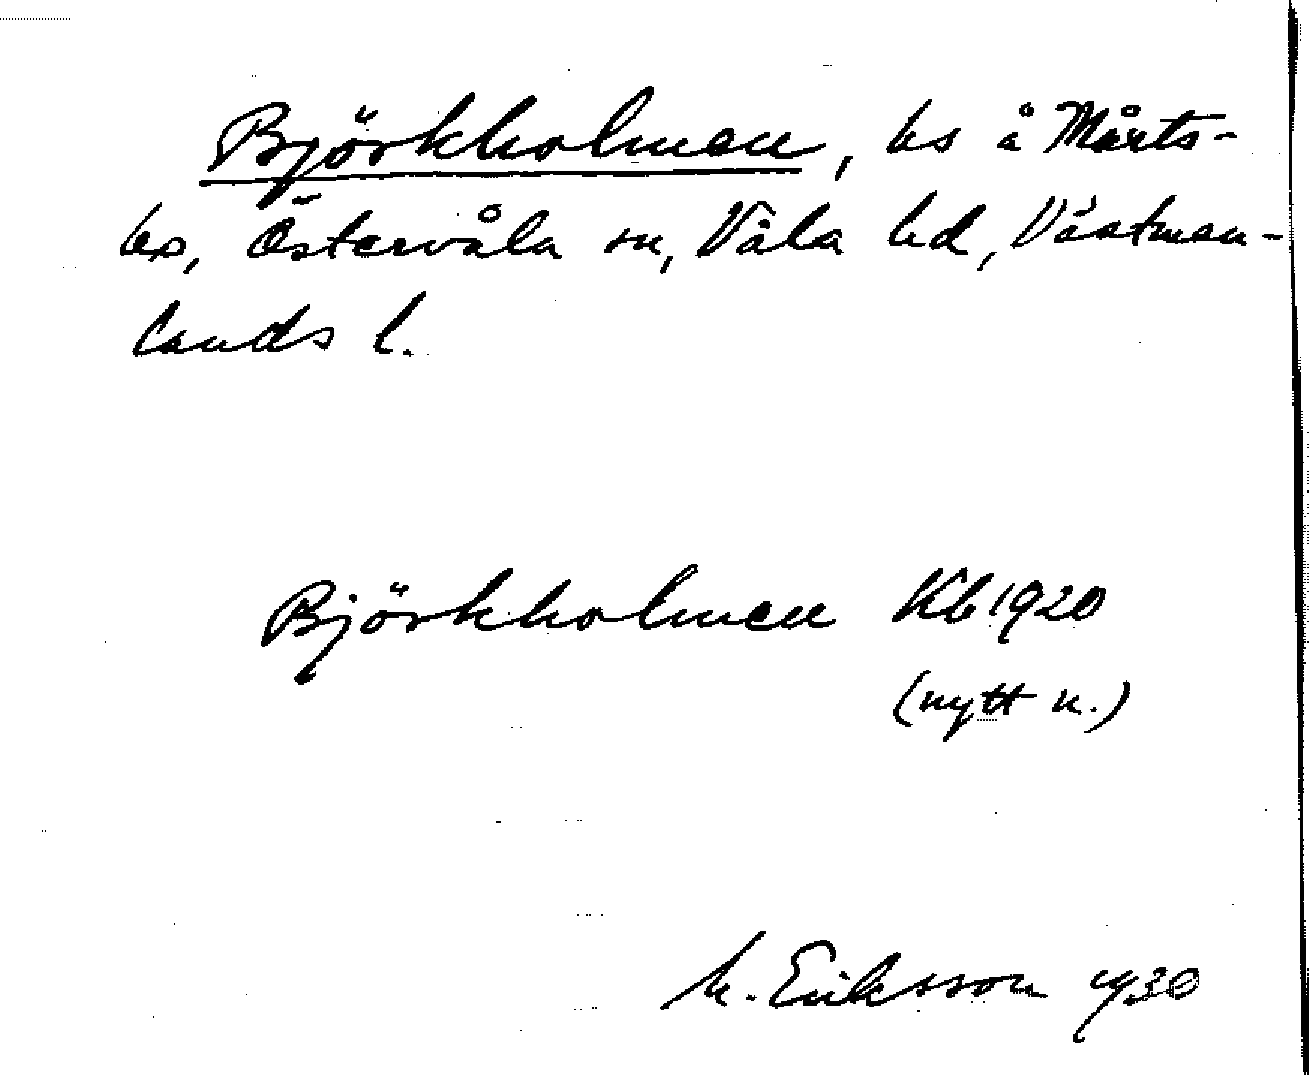 Björkholmen, bs å Mårts-
bo, Östervåla sn, Våla hd, Västman-
lands l.
Björkholmen Kb 1920
(nytt n.)
M. Eriksson 1930